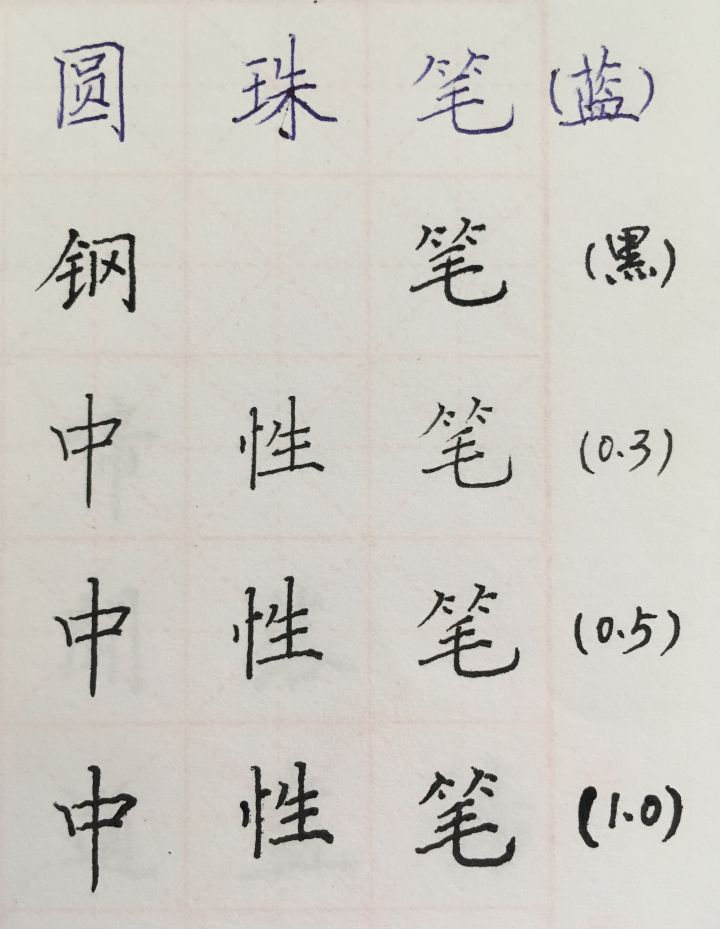 圆珠笔(蓝)
钢笔(黑)
中性笔(0.3)
中性笔(0.5)
中性笔(1.0)